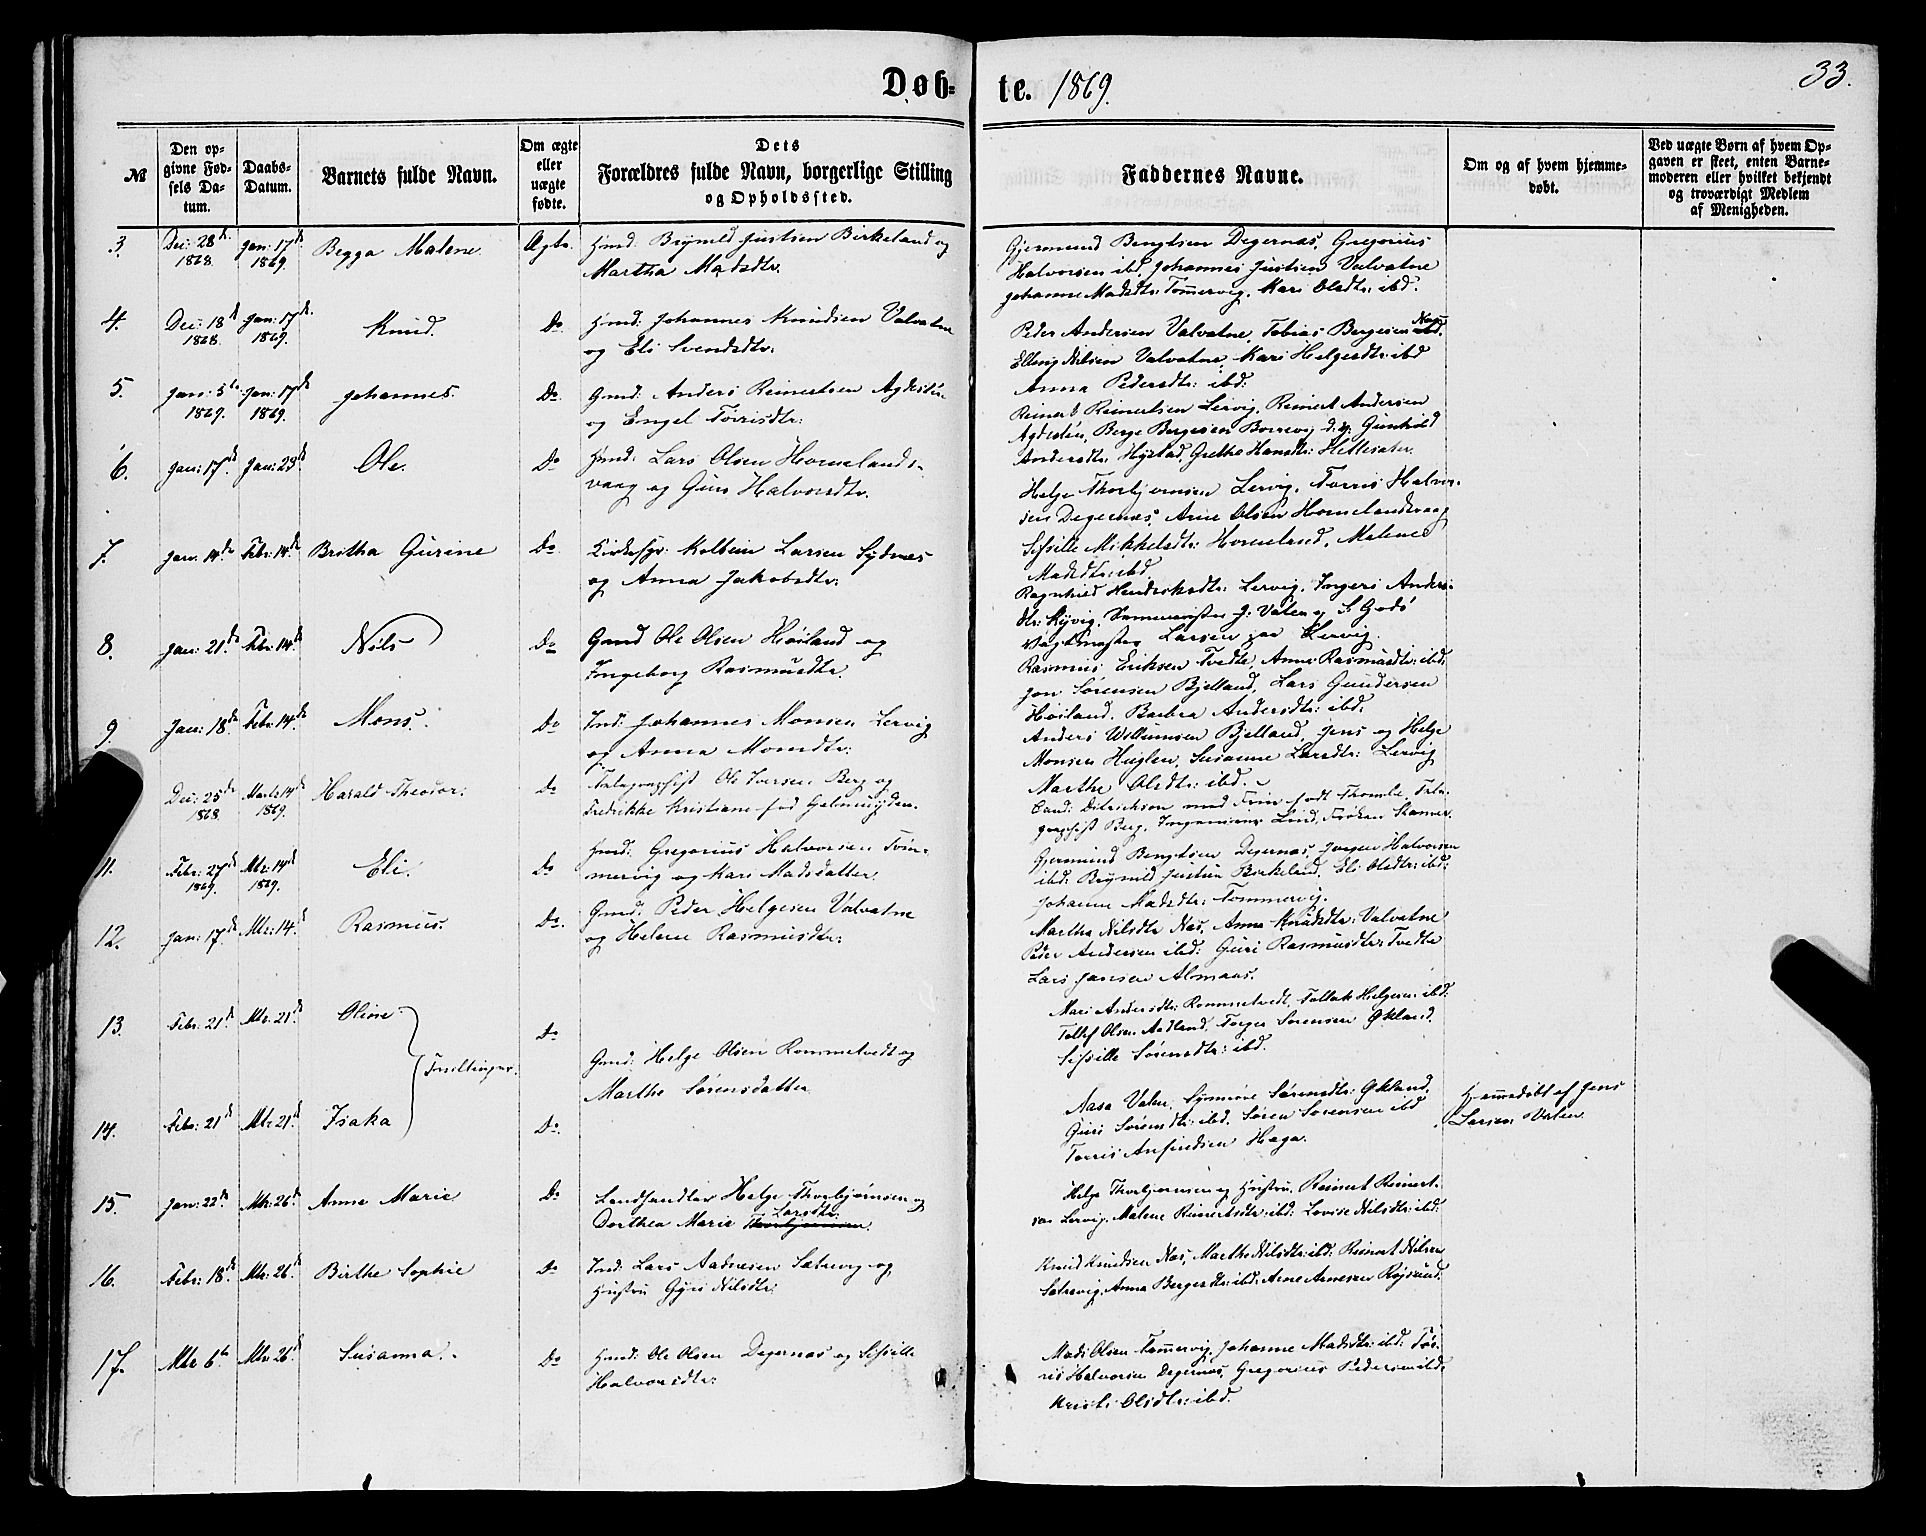 Døb-
te. 1869.
33.
№
Den op-
givne Fød-
sels Da-
tum.
Daabs-
Datum.
Barnets fulde Navn.
Om ægte
eller
uægte
fødte.
Dets
Forældres fulde Navn, borgerlige Stilling
og Opholdssted.
Faddernes Navne.
Om og af hvem hjemme-
døbt.
Ved uægte Børn af hvem Op-
gaven er skeet, enten Barne-
moderen eller hvilket bekjendt
og troværdigt Medlem
af Menigheden.
3. Dec: 28de 1868. Jan: 17de 1869. Begga Malene Ægte. Gmd. Brynild Justsen Birkeland og
Martha Madsdtr.
Gjermund Bengtsen Degernæs, Gregorius
Halvorsen ibd. Johannes Justsen Valvatne
Johanne Madsdtr: Tømmervig, Kari Olsdtr: ibd.
4. Dec: 18de 1868. Jan: 17de 1869. Knud. Do Gmd: Johannes Knudsen Valvatne
og Eli Svendsdtr.
Peder Andersen Valvatne, Tobias Bergesen Næs
Elling Nilsen Valvatne, Kari Helgesdtr: ibd
Anna Pedersdtr: ibd:
5. Jan: 5te 1869. Jan: 17de 1869. Johannes. Do. Gmd: Anders Reinertsen Agdestein
og Engel Tørrisdtr:
Reinert Reinertsen Lervig, Reinert Andersen
Agdestein, Berge Bergesen Borrevig d.y. Gunhild
Andersdtr: Hystad, Grethe Hansdtr: Hettesæter.
6. Jan: 17de Jan: 23de Ole. Do Gmd: Lars Olsen Hornelands-
vaag og Guri Halvorsdtr.
Helge Thorbjørnsen Lervig, Tørris Halvor-
sen Degernæs, Arne Olsen Hornelandsvaag
Sissille Mikkelsdtr: Horneland, Malene
Madsdtr: ibd.
7. Jan: 14de Febr: 14de Britha Gurine Do Kirkesgr: Kolbein Larsen Sydnæs
og Anna Jakobsdtr:
Ragnhild Hendriksdtr: Lervig, Ingeri Anders-
dtr: J: Valen og S. Godø
Larsen paa Lervig.
8. Jan: 21de Febr: 14de Nils Do Gmd Ole Olsen Høiland og
Ingeborg Rasmusdtr.
Rasmus Eriksen Tvedte, Anne Rasmusdtr: ibd.
Jon Sørensen Bjelland, Lars Gundersen
Høiland, Barbra Andersdtr: ibd.
9. Jan: 18de Febr: 14de Mons. Do Ind: Johannes Monsen Lervig
og Anna Monsdtr:
Anders Willumsen Bjelland, Jens og Helge
Monsen Huglen, Susanne Larsdtr: Lervig
Marthe Olsdtr: ibd.
Dec: 25de 1868. Marts 14de 1869. Harald Theodor. Do Telegraphist Ole Iversen Berg og
Fredrikke Kristiane fød Gjelmuyden.
Cand: Ditrichson med Frue født Tele-
graphist Berg, Ingeniør Lund, Frøken
11. Febr: 27de 1869. Mts: 14de 1869. Eli. Do Gmd: Gregorius Halvorsen Tøm-
mervig og Kari Madsdatter.
Gjermund Bengtsen Degernæs, Jørgen Halvorsen
ibd: Brynild Justsen Birkeland, Eli Olsdtr: ibd:
Johanne Madsdtr: Tømmervig.
12. Jan: 17de Mts: 14de Rasmus. Do. Gmd: Peder Helgesen Valvatne
og Helene Rasmusdtr:
Martha Nilsdtr Næs, Anna Knudsdtr: Valvatne
Peder Andersen ibd: Guri Rasmusdtr: Tvedte
Lars Jansen Almaas.
13. Febr: 21de Mts: 21de Oline Do
Tvillinger.
Mari Andersdtr: Rommetvedt, Tollak Helgesen ibd:
Tollef Olsen Aadland, Torger Sørensen Økland,
Sissille Sørensdtr: ibd.
Gmd: Helge Olsen Rommetvedt og
Marthe Sørensdatter
14. Febr: 21de Mts: 21de Isaka Do.
Aasa Valen, Synnøve Sørensdtr: Økland,
Guri Sørensdtr: ibd. Søren Sørensen ibd
Tørris Anfindsen Haga.
Hjemmedøbt af Jens
Larsen Valen
15. Jan: 22de Mts: 26de Anne Marie Do Landhandler Helge Thorbjørnsen og
Dorthea Marie Larsdtr.
Helge Thorbjørnsen og Hustru, Reinert Reinert-
sen Lervig, Malene Reinertsdtr: ibd: Lovise Nilsdtr: ibd:
16. Febr: 18de Mts: 26de Birthe Sophie Do Ind: Lars Aadnesen Sætrevig og
Hustru Gyri Nilsdtr:
Knud Knudsen Næs, Marthe Nilsdtr: ibd: Reinert Nilsen
Sætrevig, Anna Bergesdtr: ibd: Arne Arnesen Røjsund.
17. Mts 6te Mts 26de Susanna. Do Gmd: Ole Olsen Degernæs og Sissille
Halvorsdtr:
Mads Olsen Tømmervig, Johanne Madsdtr: ibd: Tør-
ris Halvorsen Degernæs, Gregorius Pedersen ibd:
Kristi Olsdtr: ibd.